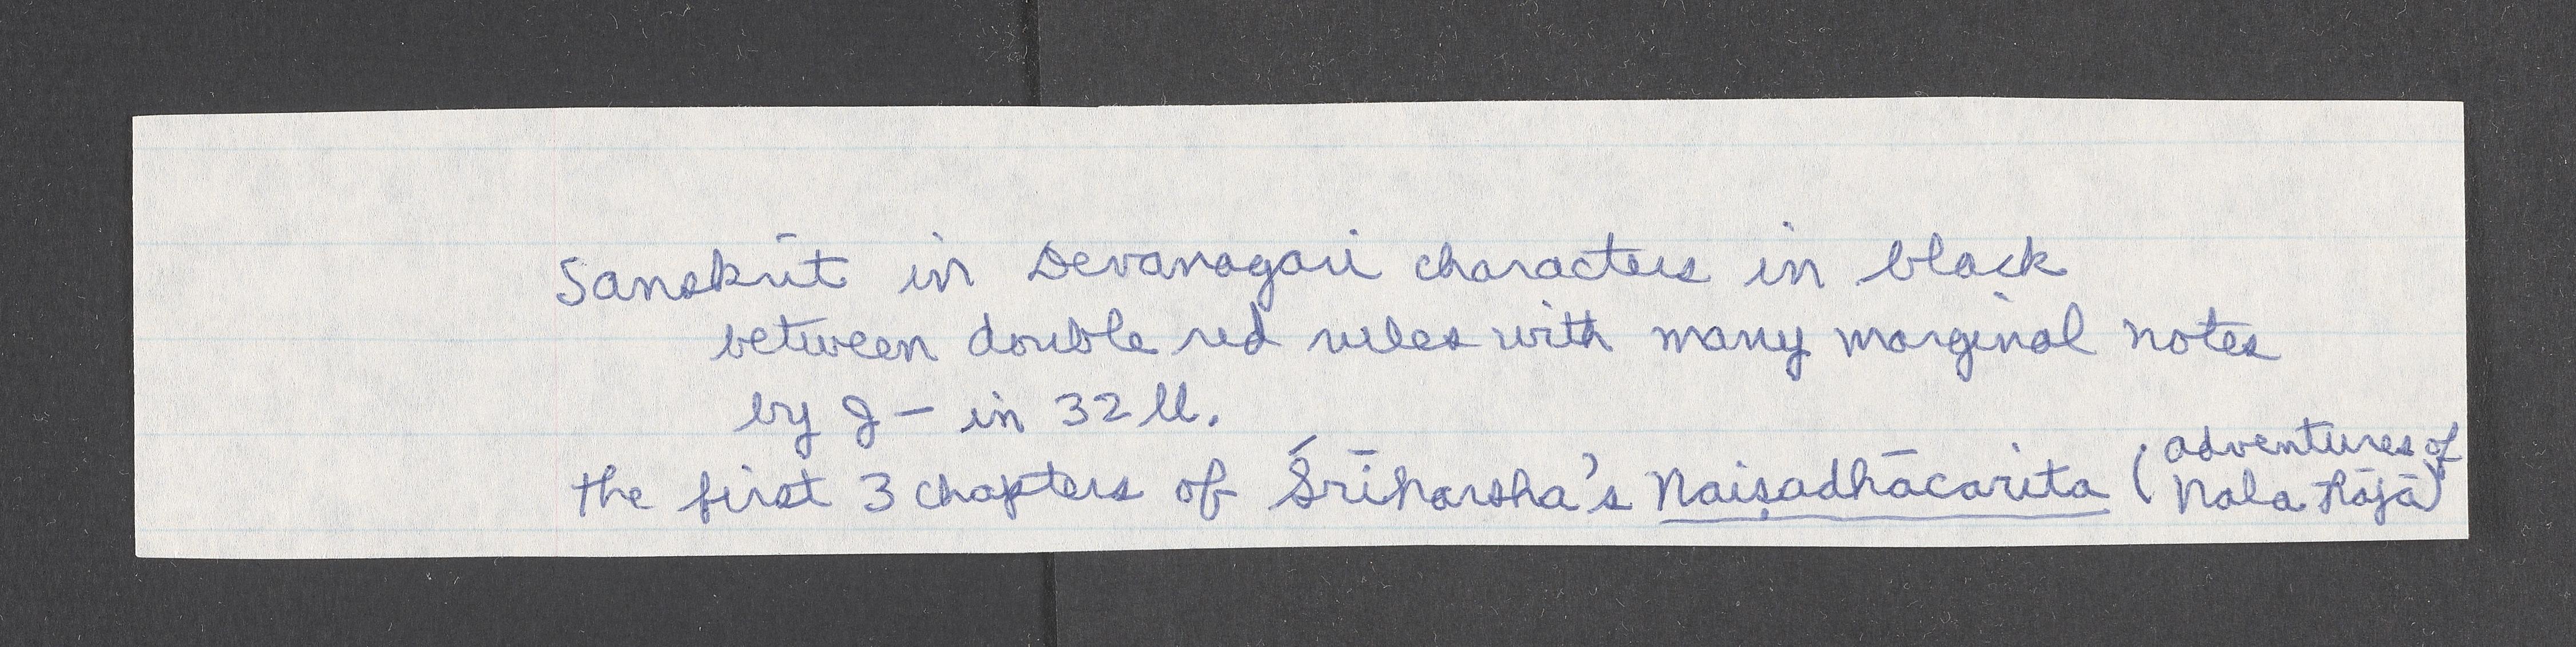 Sanskrit in Devanagari characters in black
between double red rules with many marginal notes
by J – in 32 ll.
the first 3 chapters of Śrīharsha's Naiṣadhācarita (adventures of
Nala Rājā)